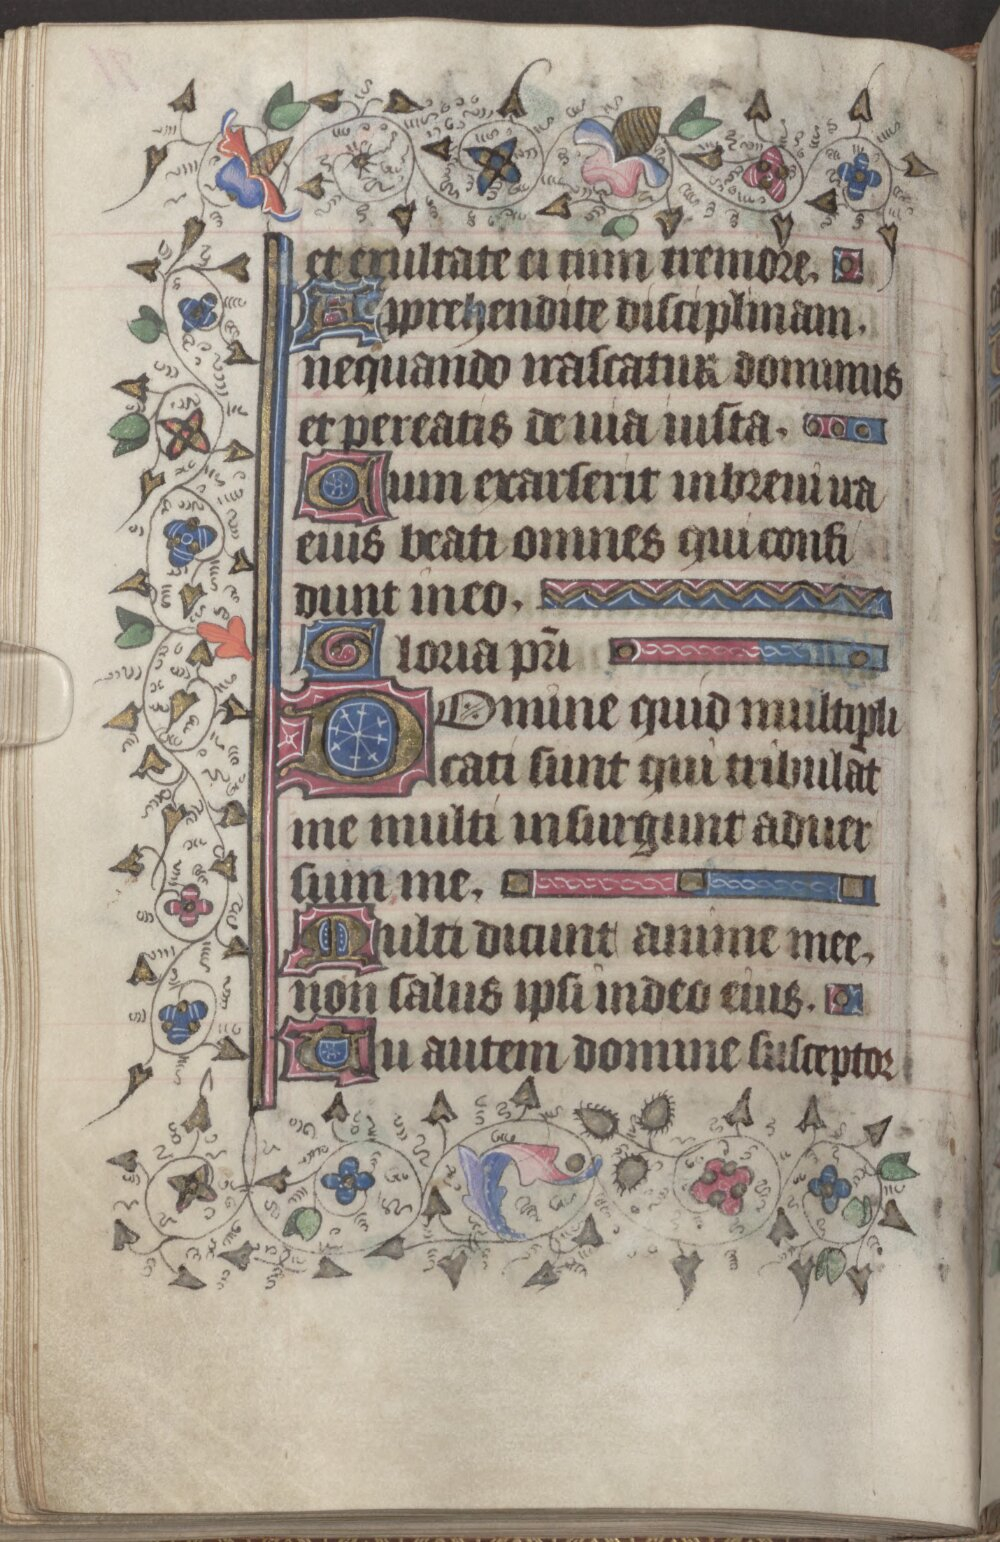 et exultate ei cum tremore.
Apprehendite disciplinam.
nequando irascatur dominus
et pereatis de uia iusta.
Cum exarserit inbreui ira
eius beati omnes qui confi
dunt ineo.
Gloria pr̃i
Domine quid multipli
cati sunt qui tribulat
me multi insurgunt aduer
sum me.
Multi dicunt anime mee.
non salus ipsi indeo eius.
Tu autem domine susceptor